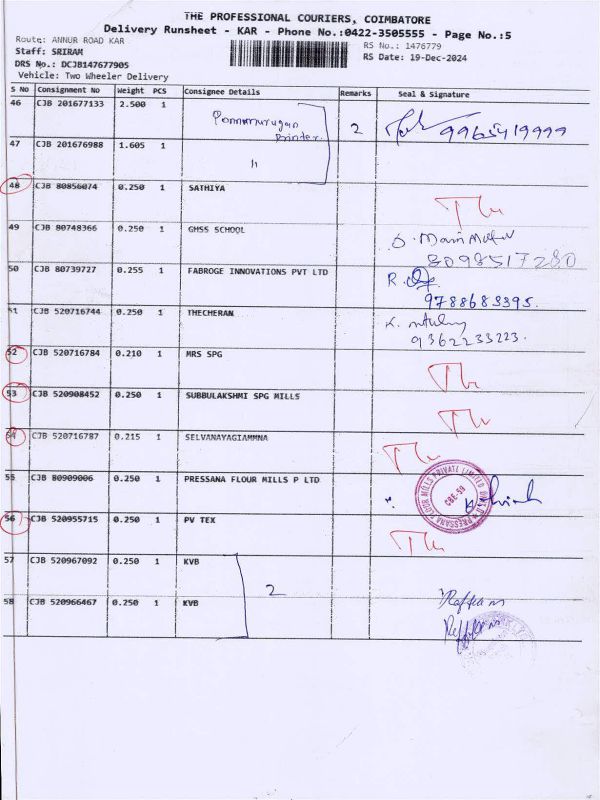 THE PROFESSIONAL COURIERS, COIMBATORE
Delivery Runsheet - KAR - Phone No.:0422-3505555 - Page No.:5
Route: ANNUR ROAD KAR
RS No.: 1476779
Staff: SRIRAM
RS Date: 19-Dec-2024
DRS No.: DCJB147677905
Vehicle: Two Wheeler Delivery
S No Consignment No Weight PCS Consignee Details Remarks Seal & Signature
46 CJB 201677133 2.500 1 2 9965419999
47 CJB 201676988 1.605 1 11
48 CJB 80856074 0.250 1 SATHIYA
49 CJB 80748366 0.250 1 GHSS SCHOOL
8098517280
50 CJB 80739727 0.255 1 FABROGE INNOVATIONS PVT LTD R.
9788683395.
51 CJB 520716744 0.250 1 THECHERAN
9362233223.
52 CJB 520716784 0.210 1 MRS SPG
53 CJB 520908452 0.250 1 SUBBULAKSHMI SPG MILLS
54 CJB 520716787 0.215 1 SELVANAYAGIAMMNA
55 CJB 80909006 0.250 1 PRESSANA FLOUR MILLS P LTD
PRESSANA FLOUR MILLS PRIVATE LIMITED
CBE-59
56 CJB 520955715 0.250 1 PV TEX
57 CJB 520967092 0.250 1 KVB
2
58 CJB 520966467 0.250 1 KVB